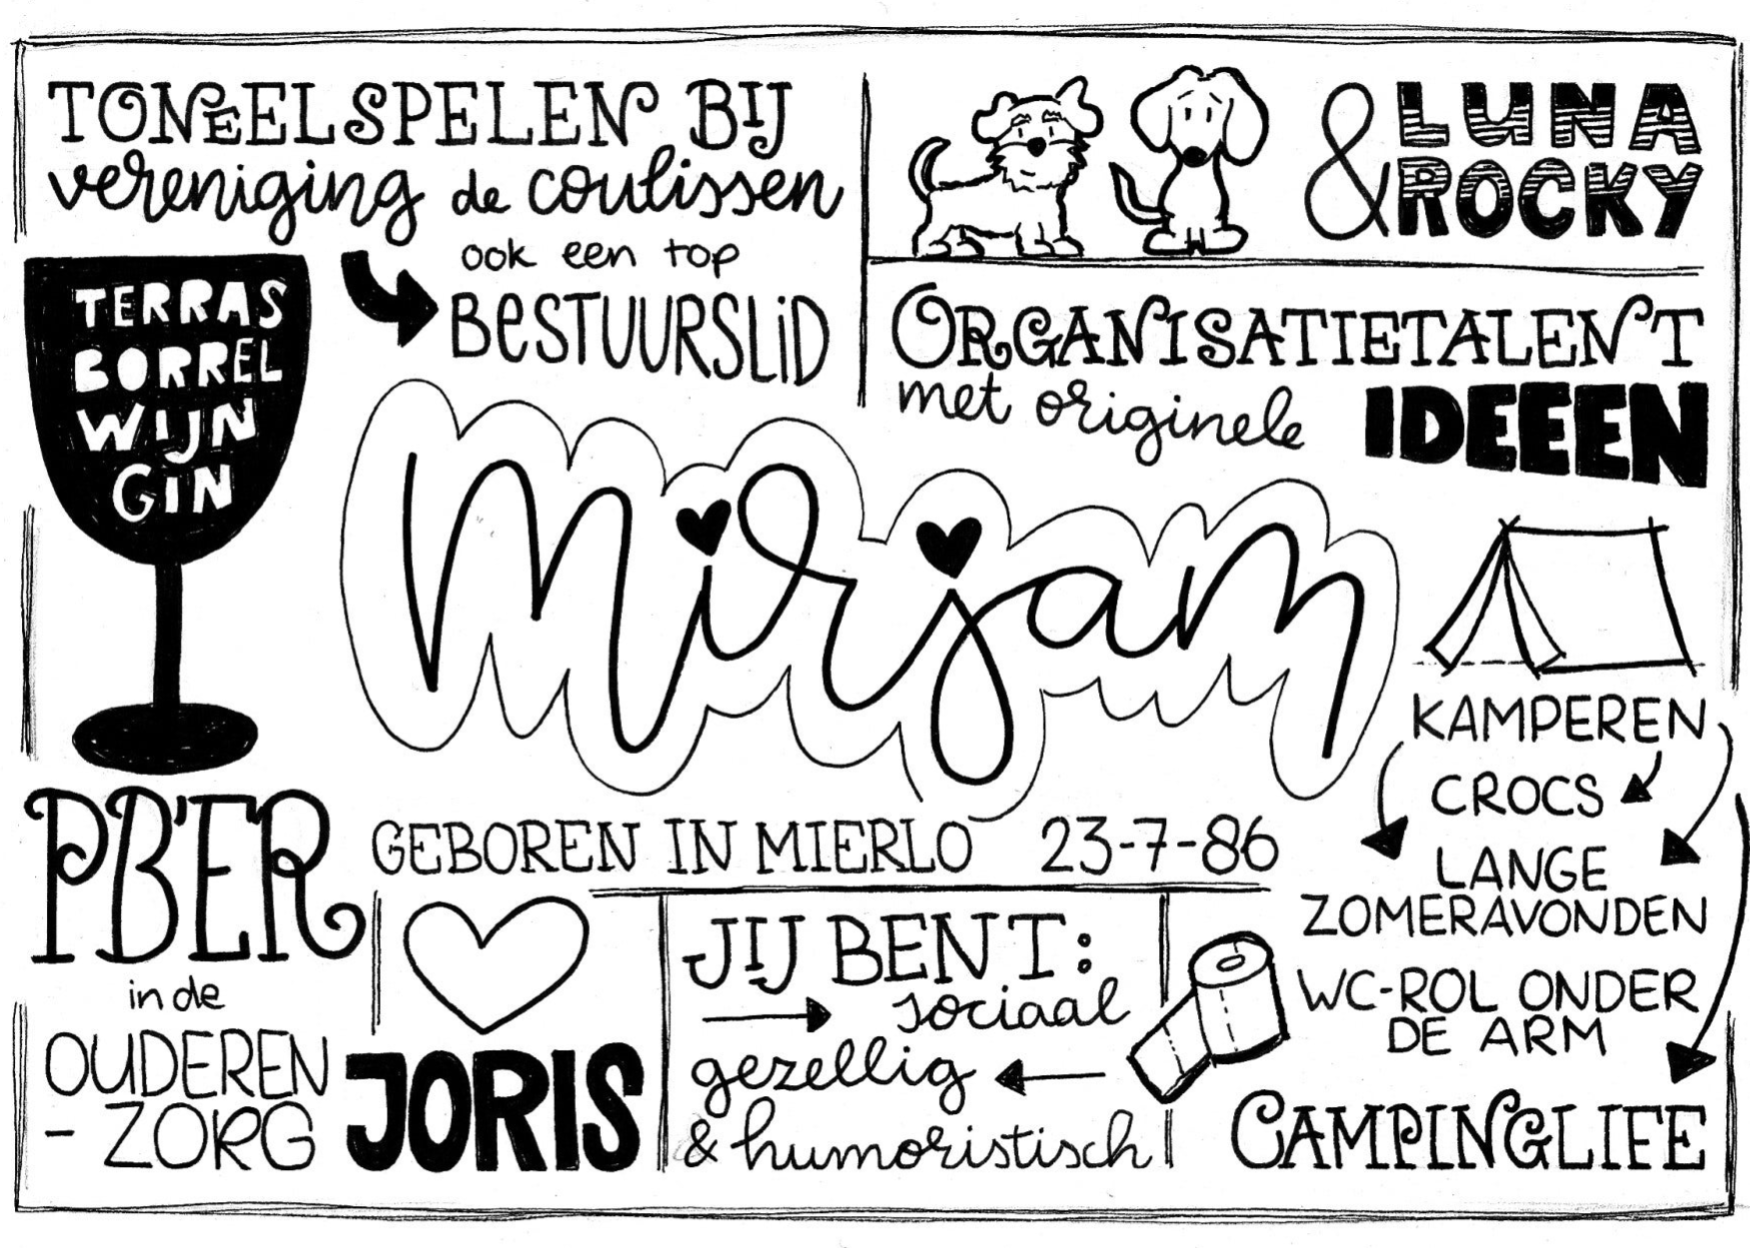 TONEELSPELEN BIJ
vereniging de coulissen
ook een top
BESTUURSLID
& LUNA
ROCKY
ORGANISATIETALENT
met originele IDEEEN
TERRAS
BORREL
WIJN
GIN
mirjam
GEBOREN IN MIERLO 23-7-86
PB'ER
in de
OUDEREN
- ZORG
JORIS
JIJ BENT:
sociaal
gezellig
& humoristisch
KAMPEREN
CROCS
LANGE
ZOMERAVONDEN
WC-ROL ONDER
DE ARM
CAMPINGLIFE